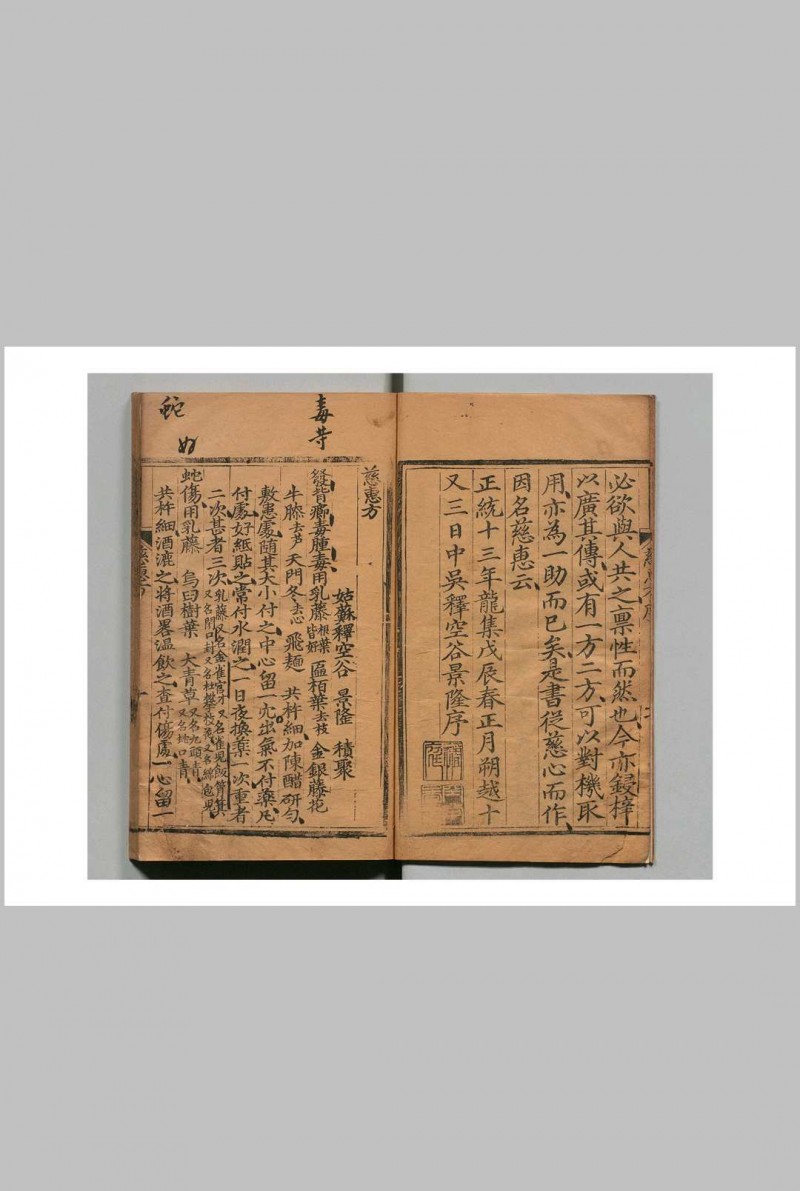 必欲與人共之稟性而然也今亦鋟梓
以廣其傳或有一方二方可以對機取
用亦為一助而已矣是書從慈心而作
因名慈惠云
正統十三年龍集戊辰春正月朔越十
又三日中吳釋空谷景隆序
慈惠方
姑蘇釋空谷 景隆 積聚
毒腫毒用乳藤根葉皆好 匾栢葉去枝 金銀藤花
牛膝去芦 天門冬去心 飛麺 共杵細加陳醋研勻
敷患處隨其大小付之中心留一穴出氣不付藥凡
付處好紙貼之常付水潤之一日夜換藥一次重者
二次甚者三次
虵傷用乳藤 烏臼樹葉 大青草
共杵細酒漉之將酒畧温飲之查付傷處一心留一
毒
蛇
慈惠方